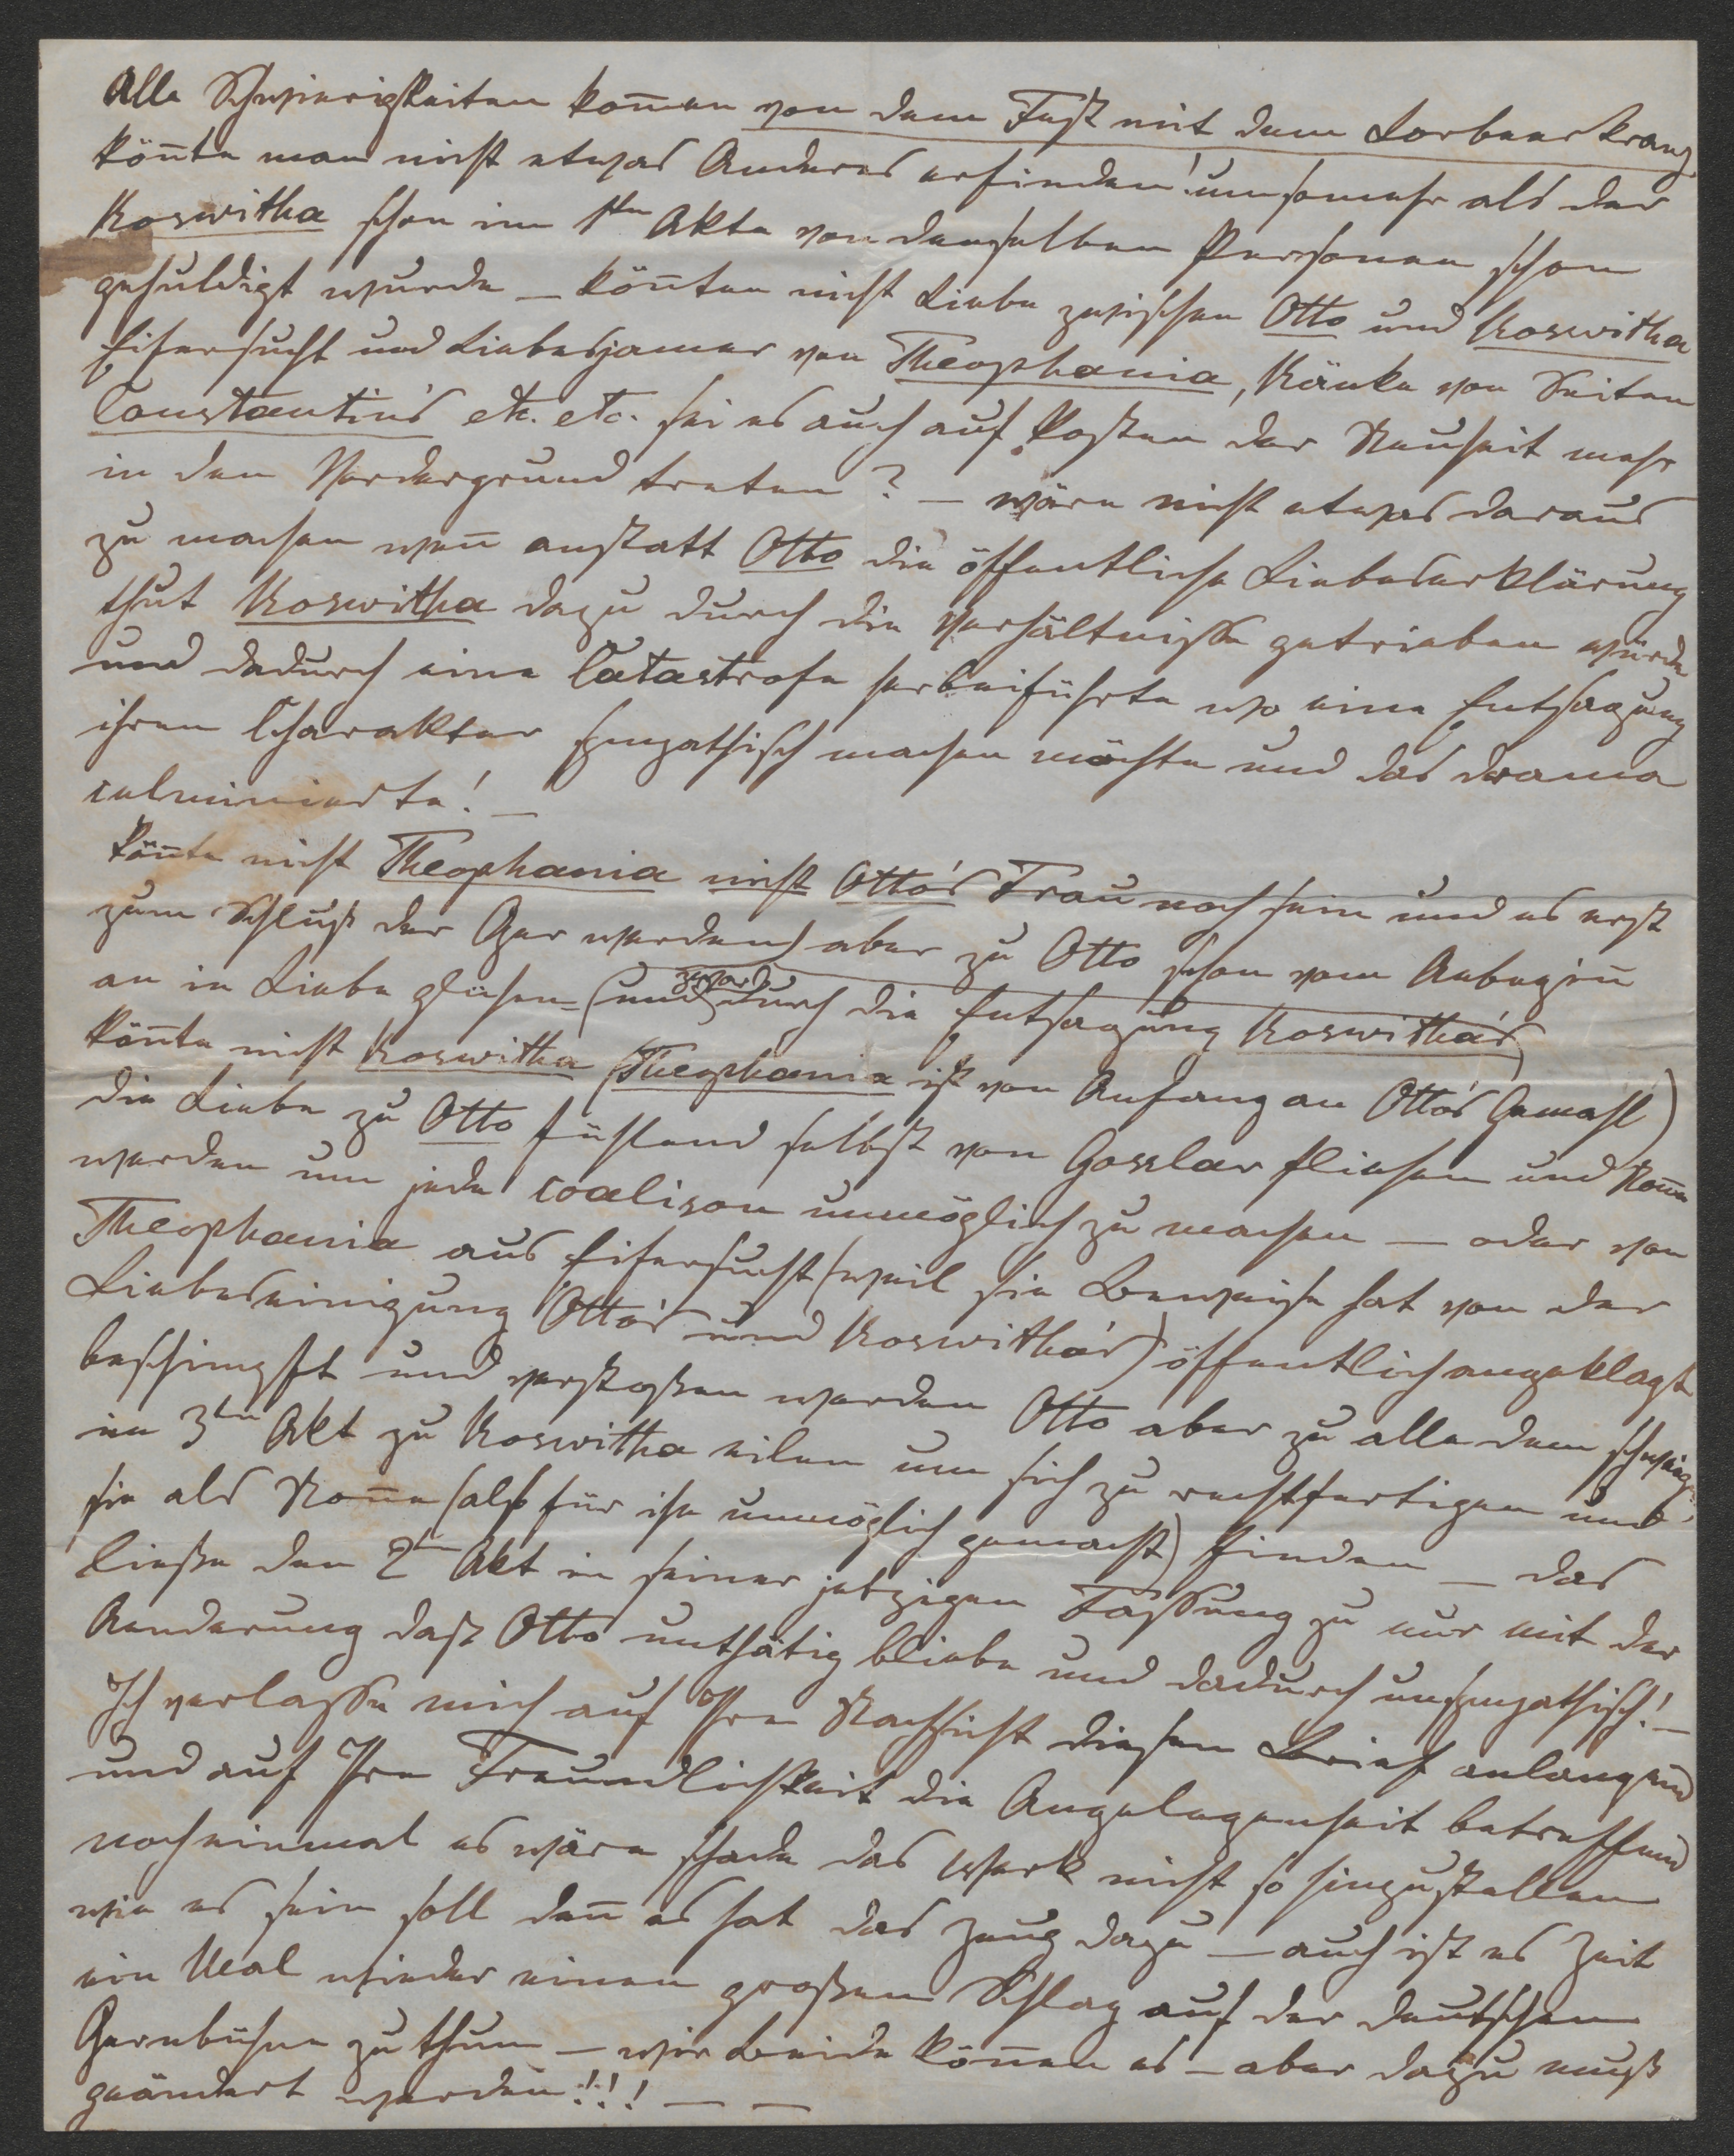 Alle Schwierigkeiten kom̄en von dem Fest mit dem Lorbeerkranz
kön̄te man nicht etwas Anderes erfinden! umsomehr als der
Roswitha schon im 1ten Akte von denselben Personen schon
gehuldigt wurde – kön̄ten nicht Liebe zwischen Otto und Roswitha
Eifersucht und Liebesjamer von Theophania, Ränke von Seiten
Constantin's etc. etc. sei es auch auf Kosten der Neuheit mehr
in den Vordergrund treten? – wäre nicht etwas daraus
zu machen wen̄ anstatt Otto die öffentliche Liebeserklärung
thut Roswitha dazu durch die Verhältnisse getrieben würde
und dadurch eine Catastrofe herbeiführte wo eine Entsagung
ihren Charakter sympathisch machen möchte und das drama
culminierte! –
Kön̄te nicht Theophania nicht Otto's Frau noch sein und es erst
zum Schluß der Oper werden aber zu Otto schon vom Anbegin̄
an in Liebe glühen – (und zwar durch die Entsagung Roswitha's)
kön̄te nicht Roswitha (Theophania ist von Anfang an Otto's Gemahl)
die Liebe zu Otto fühlend selbst von Gosslar fliehen und Non̄e
werden um jede coalison unmöglich zu machen – oder von
Theophania aus Eifersucht (weil sie Beweise hat von der
Liebeseinigung Otto's und Roswitha's) öffentlich angeklagt
beschimpft und verstoßen werden Otto aber zu alle dem schweigen
im 3ten Akt zu Roswitha eilen um sich zu rechtfertigen und
sie als Non̄e (also für ihn unmöglich gemacht) finden – das
ließe den 2ten Akt in seiner jetzigen Fassung zu nur mit der
Aenderung daß Otto unthätig bliebe und dadurch unsympathisch! –
Ich verlasse mich auf Ihre Nachsicht diesen Brief anlangend
und auf Ihre Freundlichkeit die Angelegenheit betreffend
noch einmal es wäre schade das Werk nicht so hinzustellen
wie es sein soll den̄ es hat das Zeug dazu – auch ist es Zeit
ein Mal wieder einen großen Schlag auf der deutschen
Opernbühne zu thun – wir Beide kön̄en es – aber dazu muß
geändert werden!!! – –